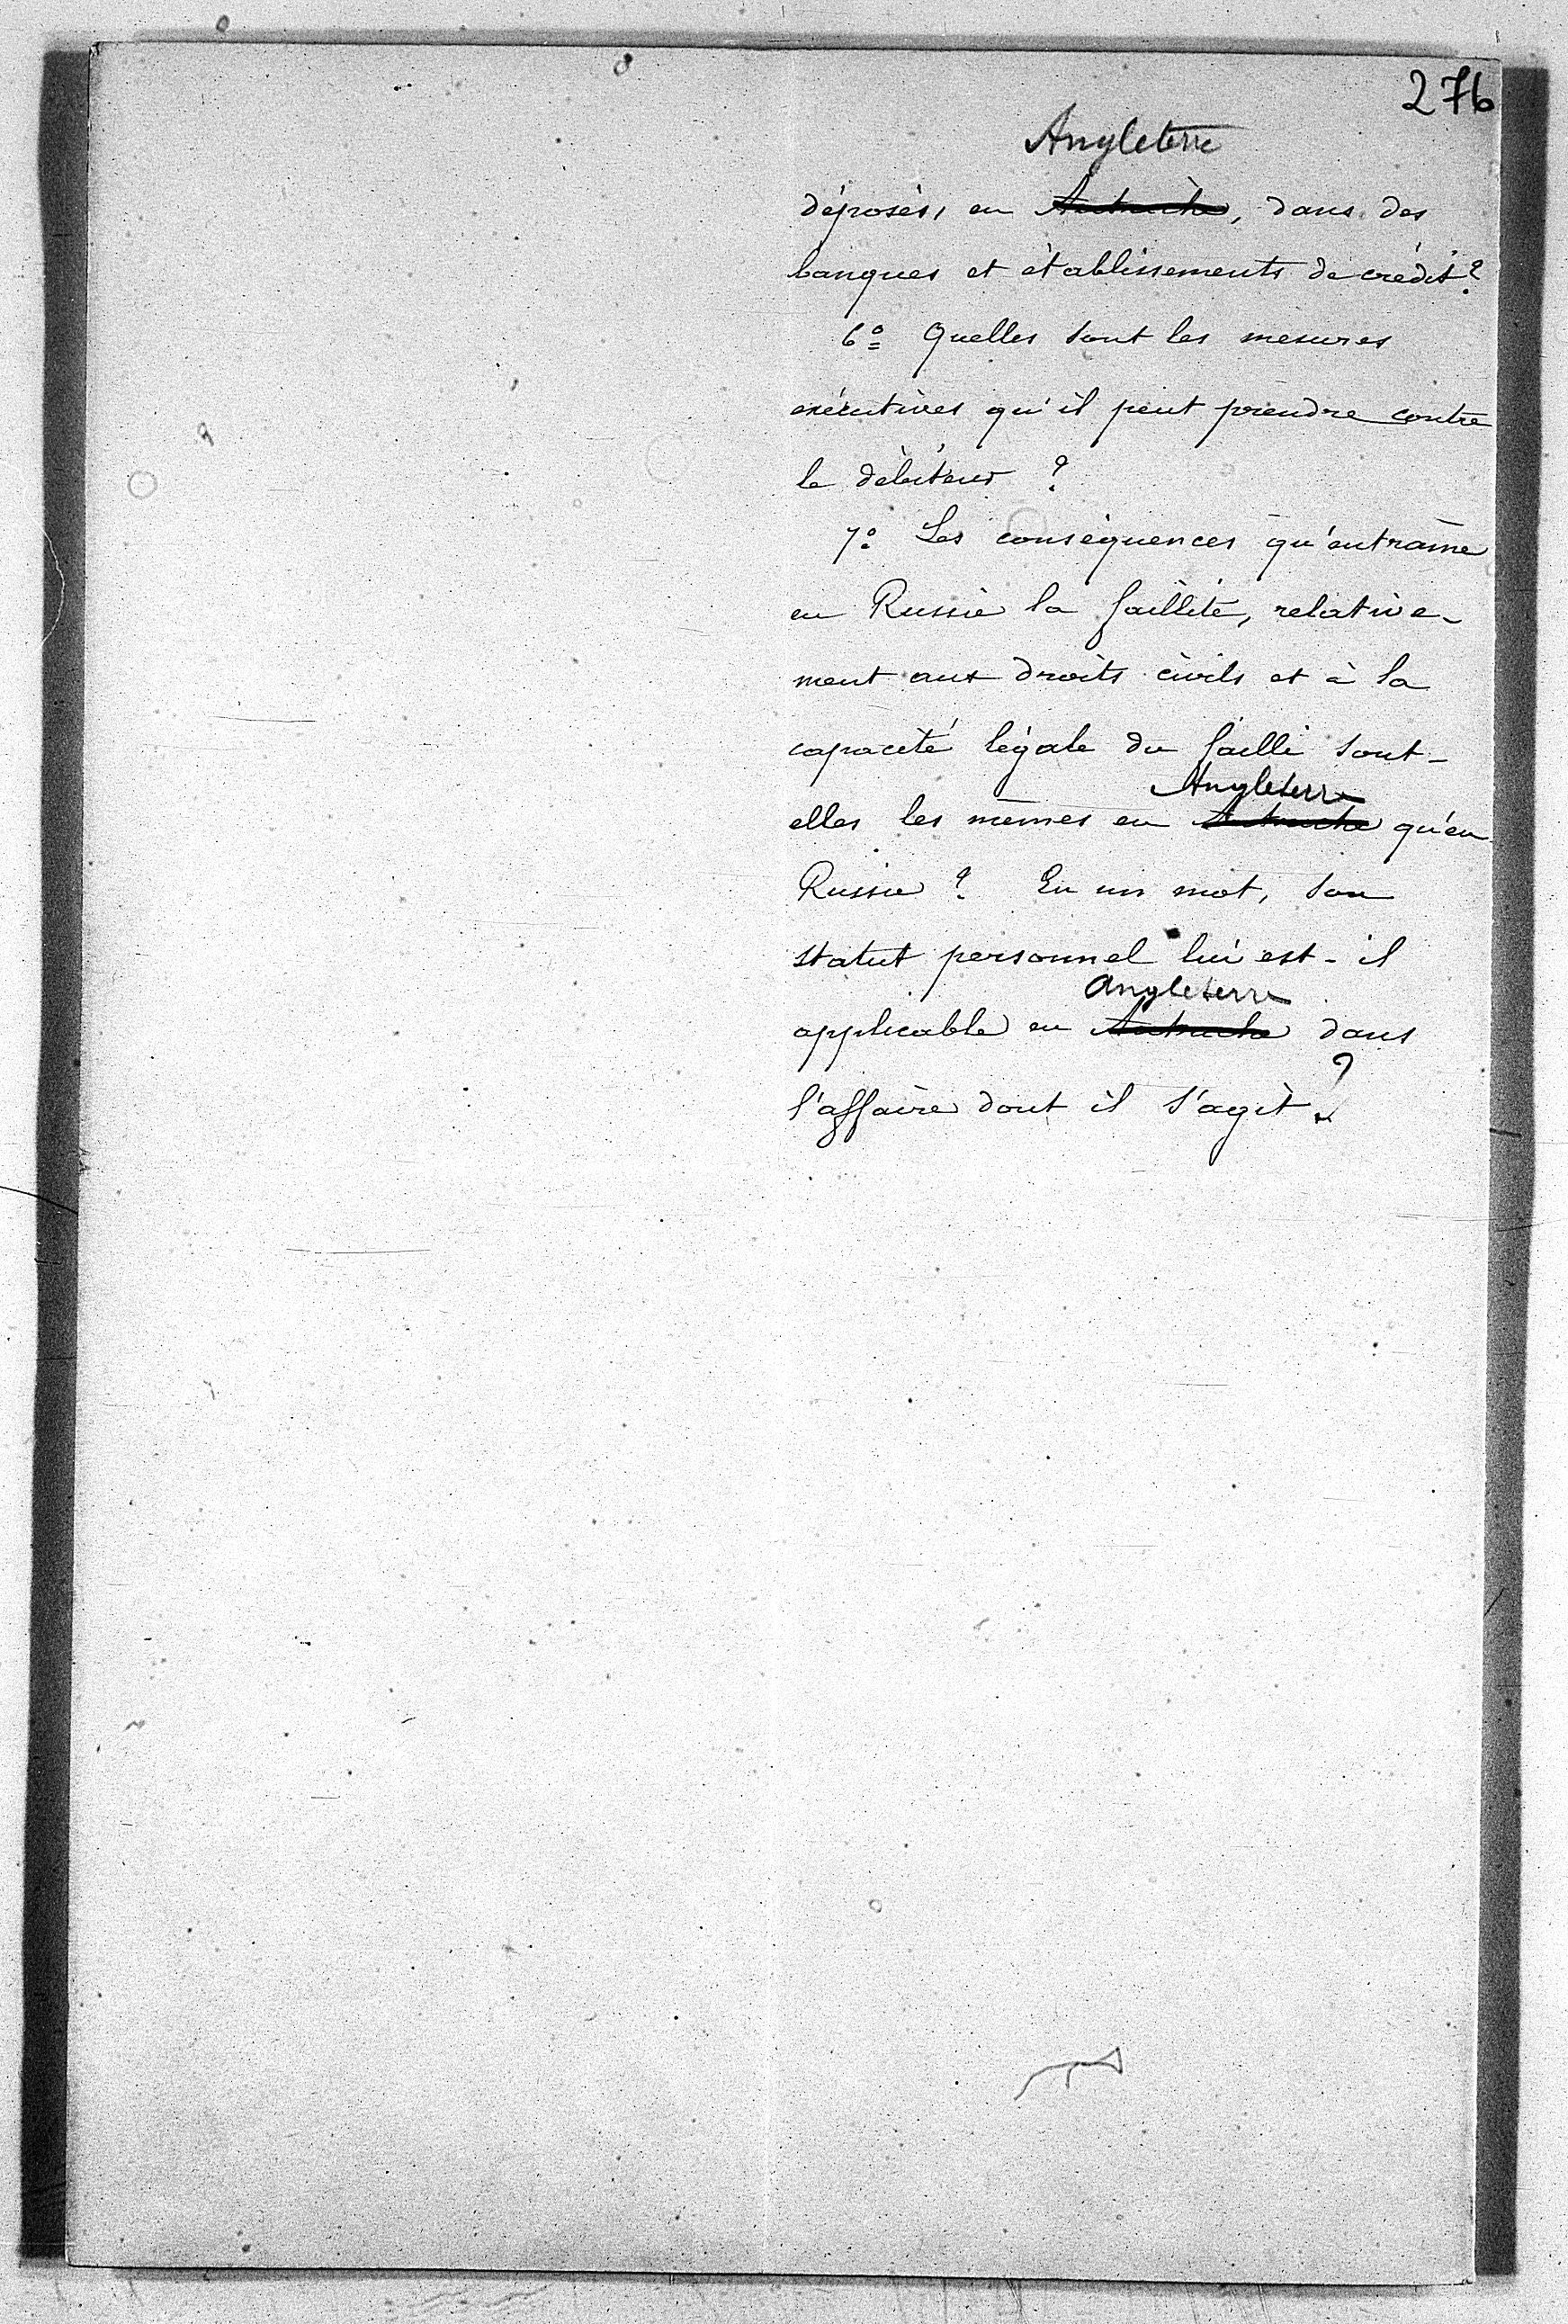 276
Angleterre
déposés, en Autriche, dans des
banques et établissements de crédit?
6º Quelles sont les mesures
exécutives qu'il peut prendre contre
le débiteur ?
7º Les conséquences qu'entraîne
en Russie la faillite, relative-
ment aux droits civils et à la
capacité légale du failli sont-
Angleterre
elles les mêmes en Autriche qu'en
Russie ? En un mot, son
statut personnel lui est-il
Angleterre
applicable en Autriche dans
l'affaire dont il s'agit ?